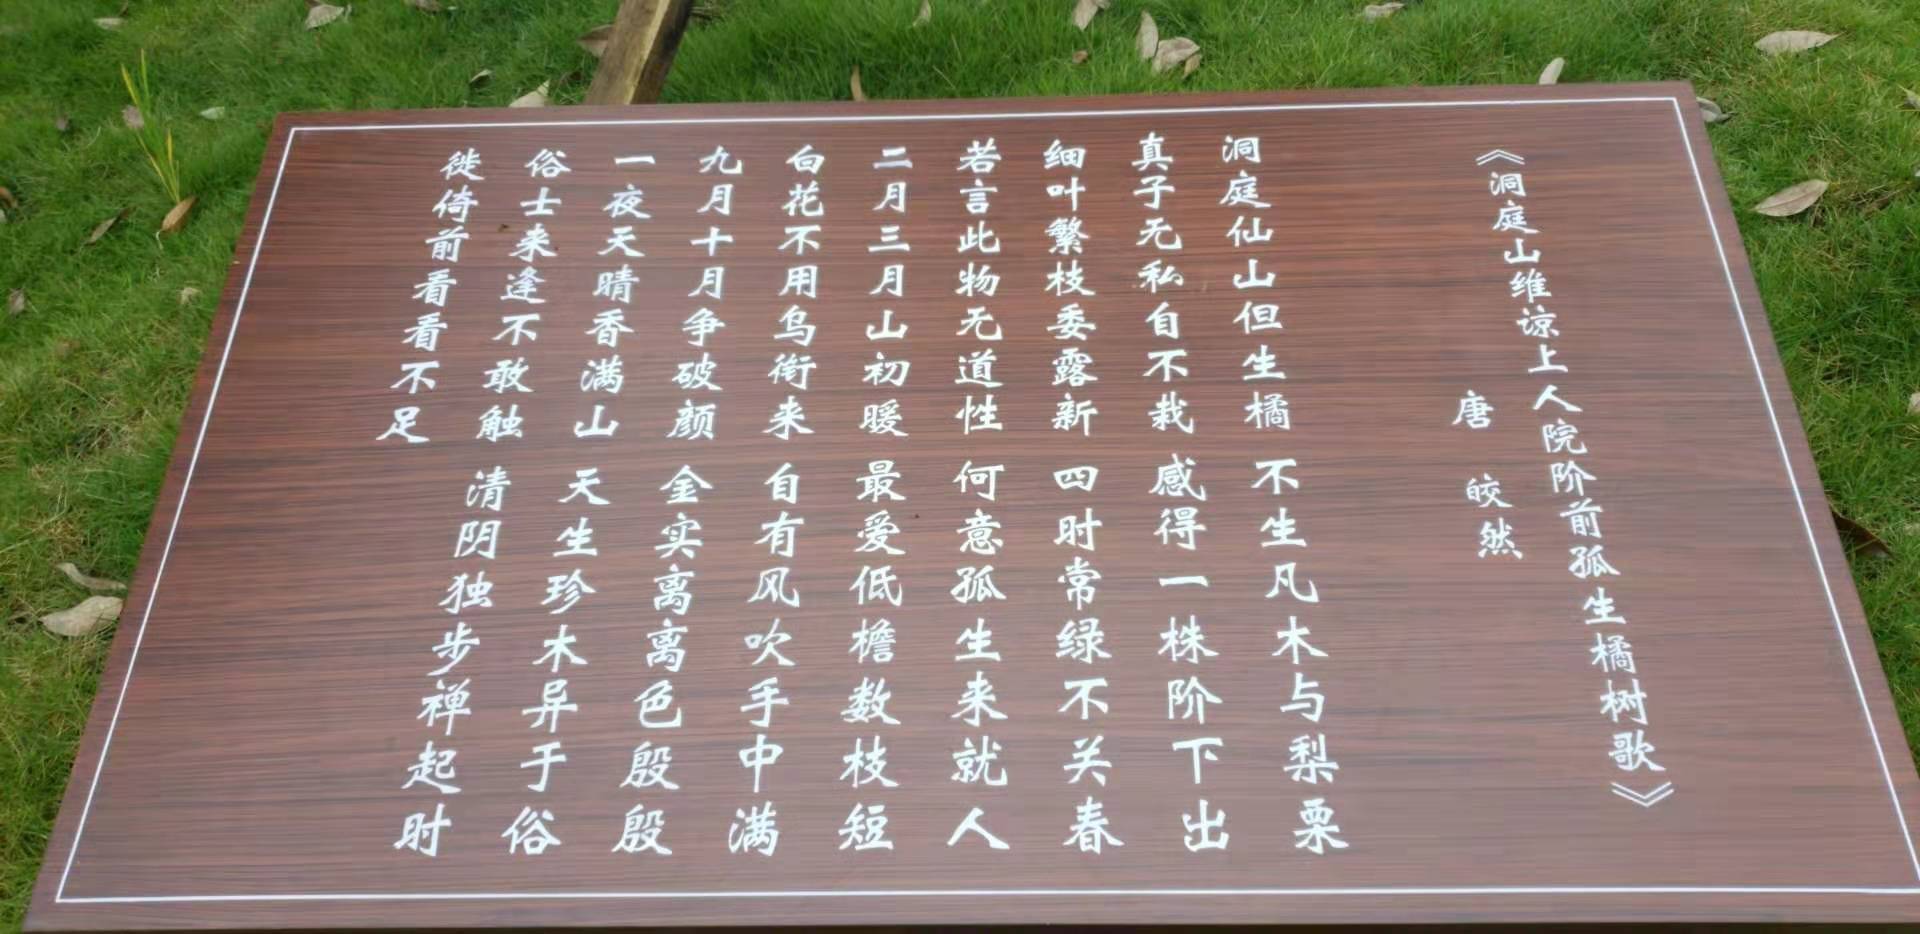 《洞庭山维谅上人院阶前孤生橘树歌》
唐 皎然
洞庭仙山但生橘 不生凡木与梨栗
真子无私自不栽 感得一株阶下出
细叶繁枝委露新 四时常绿不关春
若言此物无道性 何意孤生来就人
二月三月山初暖 最爱低檐数枝短
白花不用乌衔来 自有风吹手中满
九月十月争破颜 金实离离色殷殷
一夜天晴香满山 天生珍木异于俗
俗士来逢不敢触 清阴独步禅起时
徙倚前看看不足